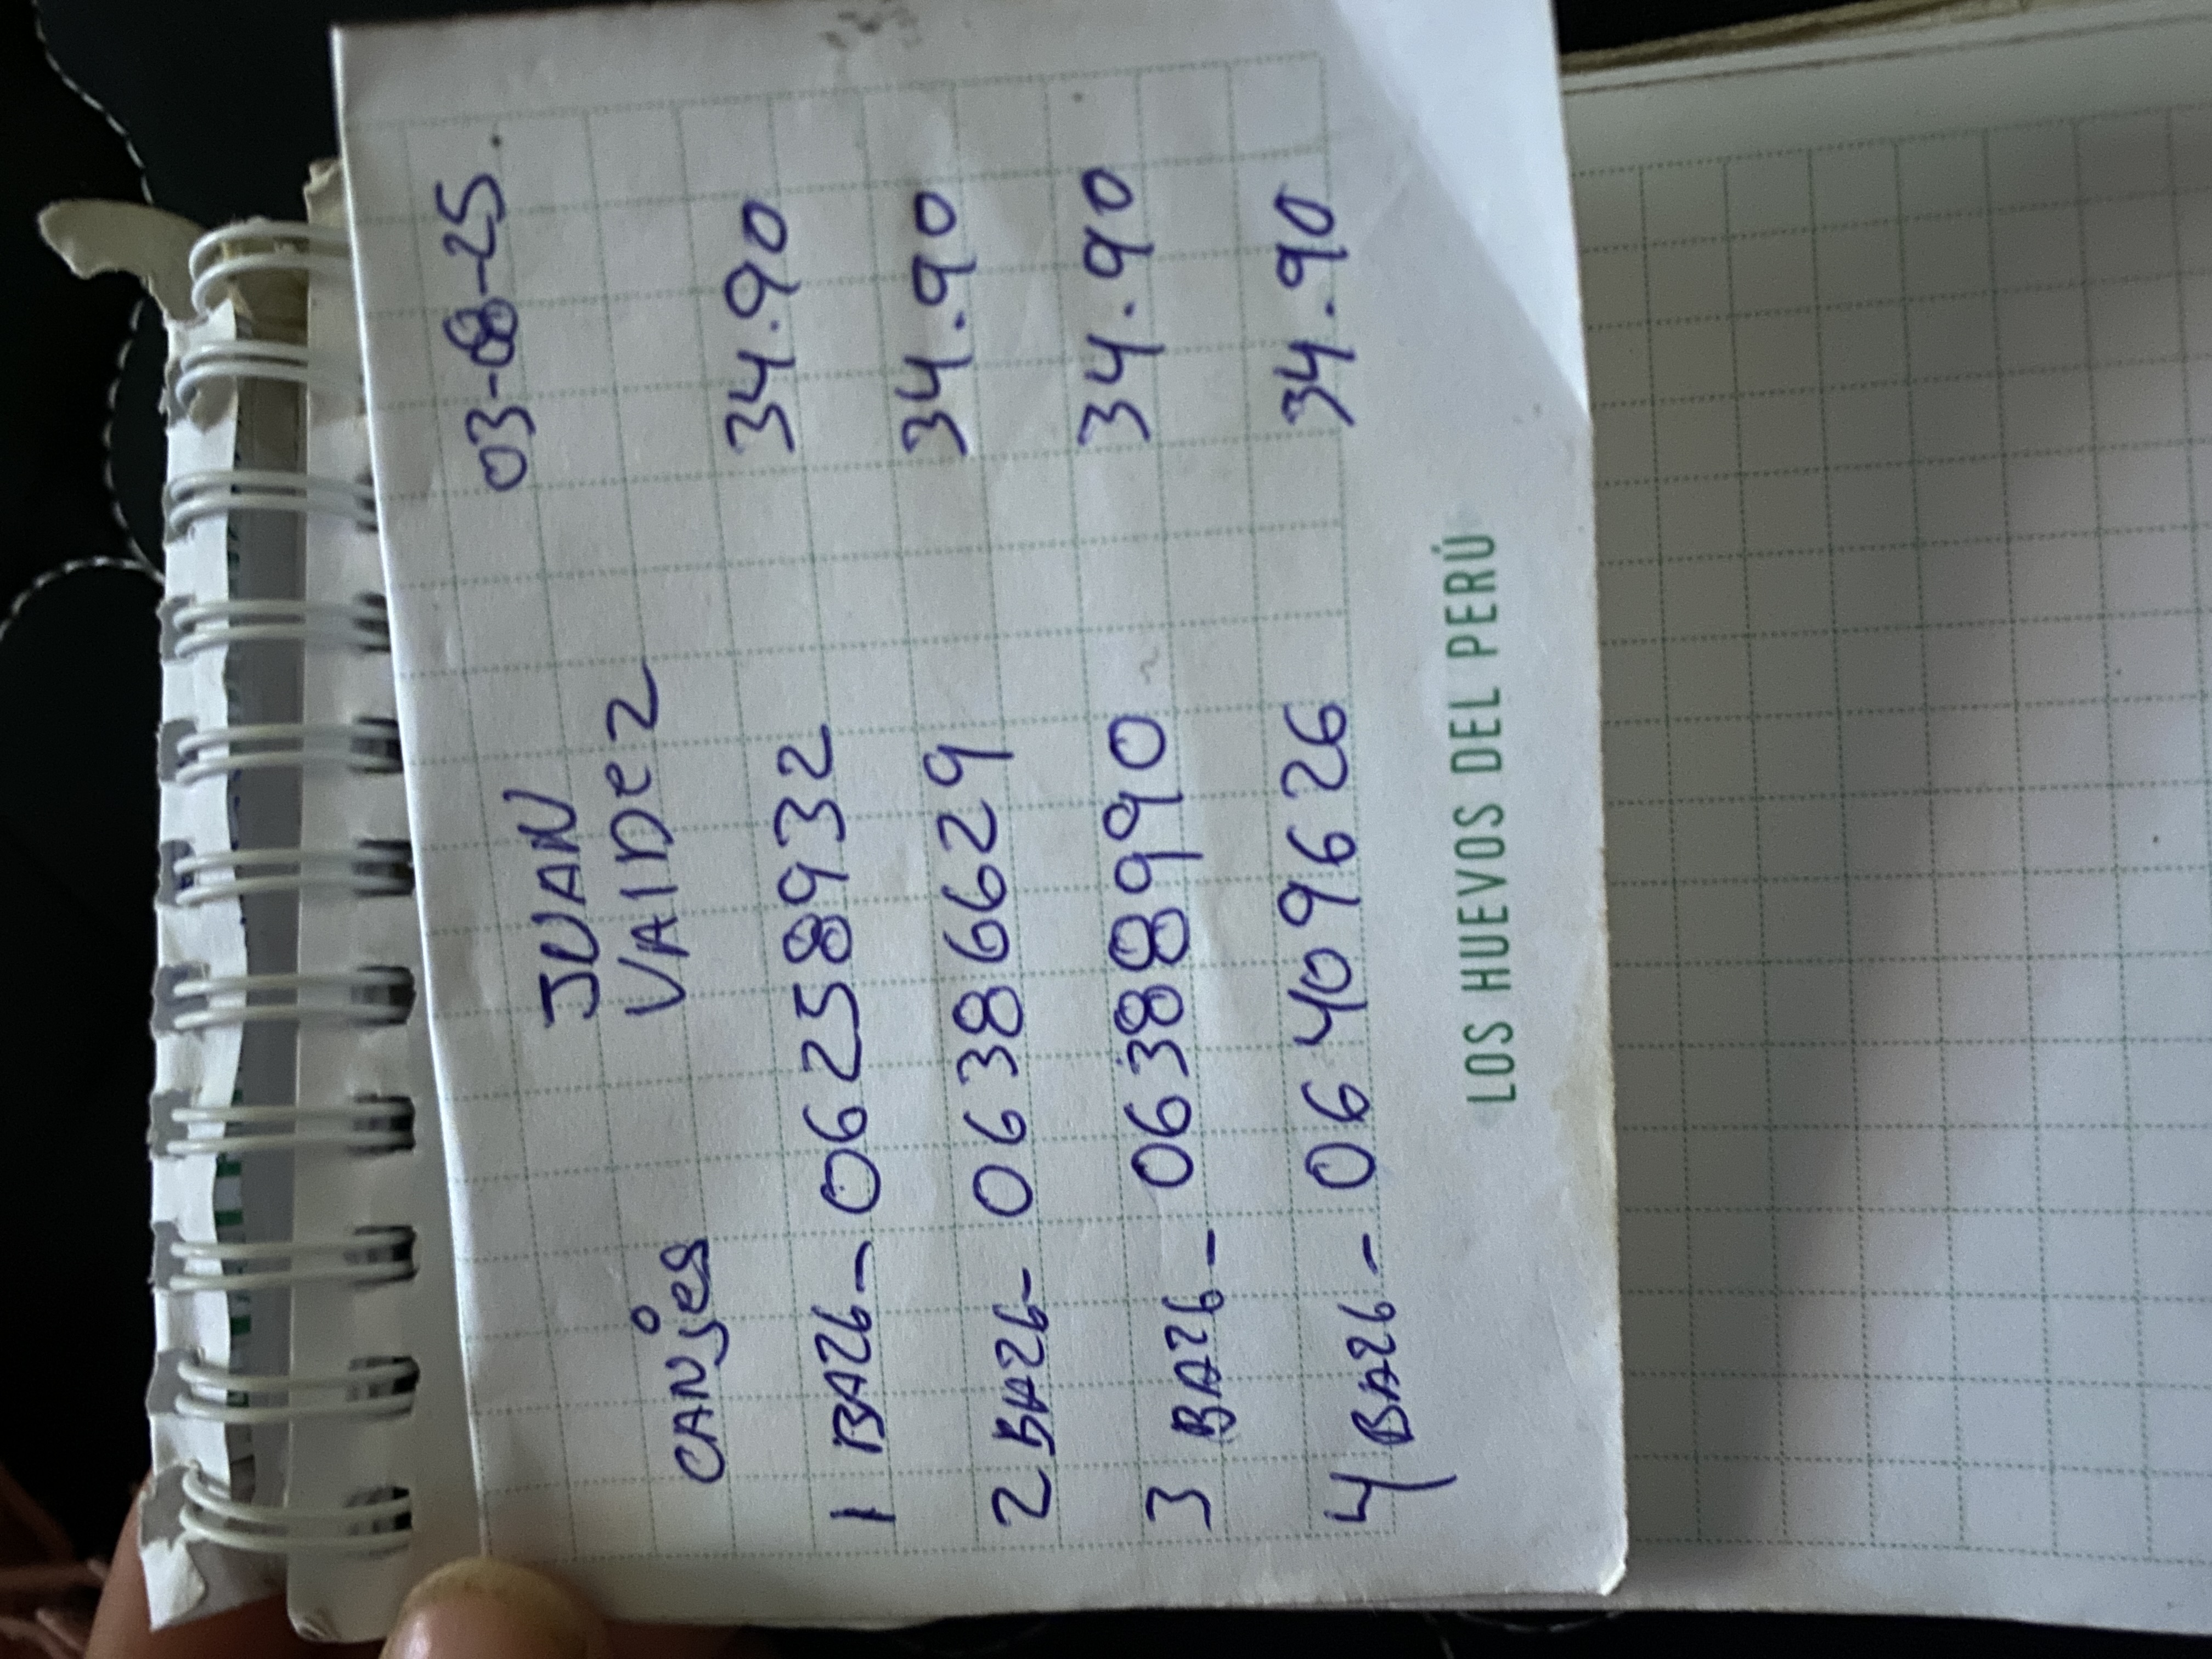 03-08-25.
JUAN
VAlDez
CANjes
1 BA26- 06258932 34.90
2 BA26- 06386629 34.90
3 BA26- 06388990 34.90
4 BA26- 06409626 34.90
LOS HUEVOS DEL PERÚ